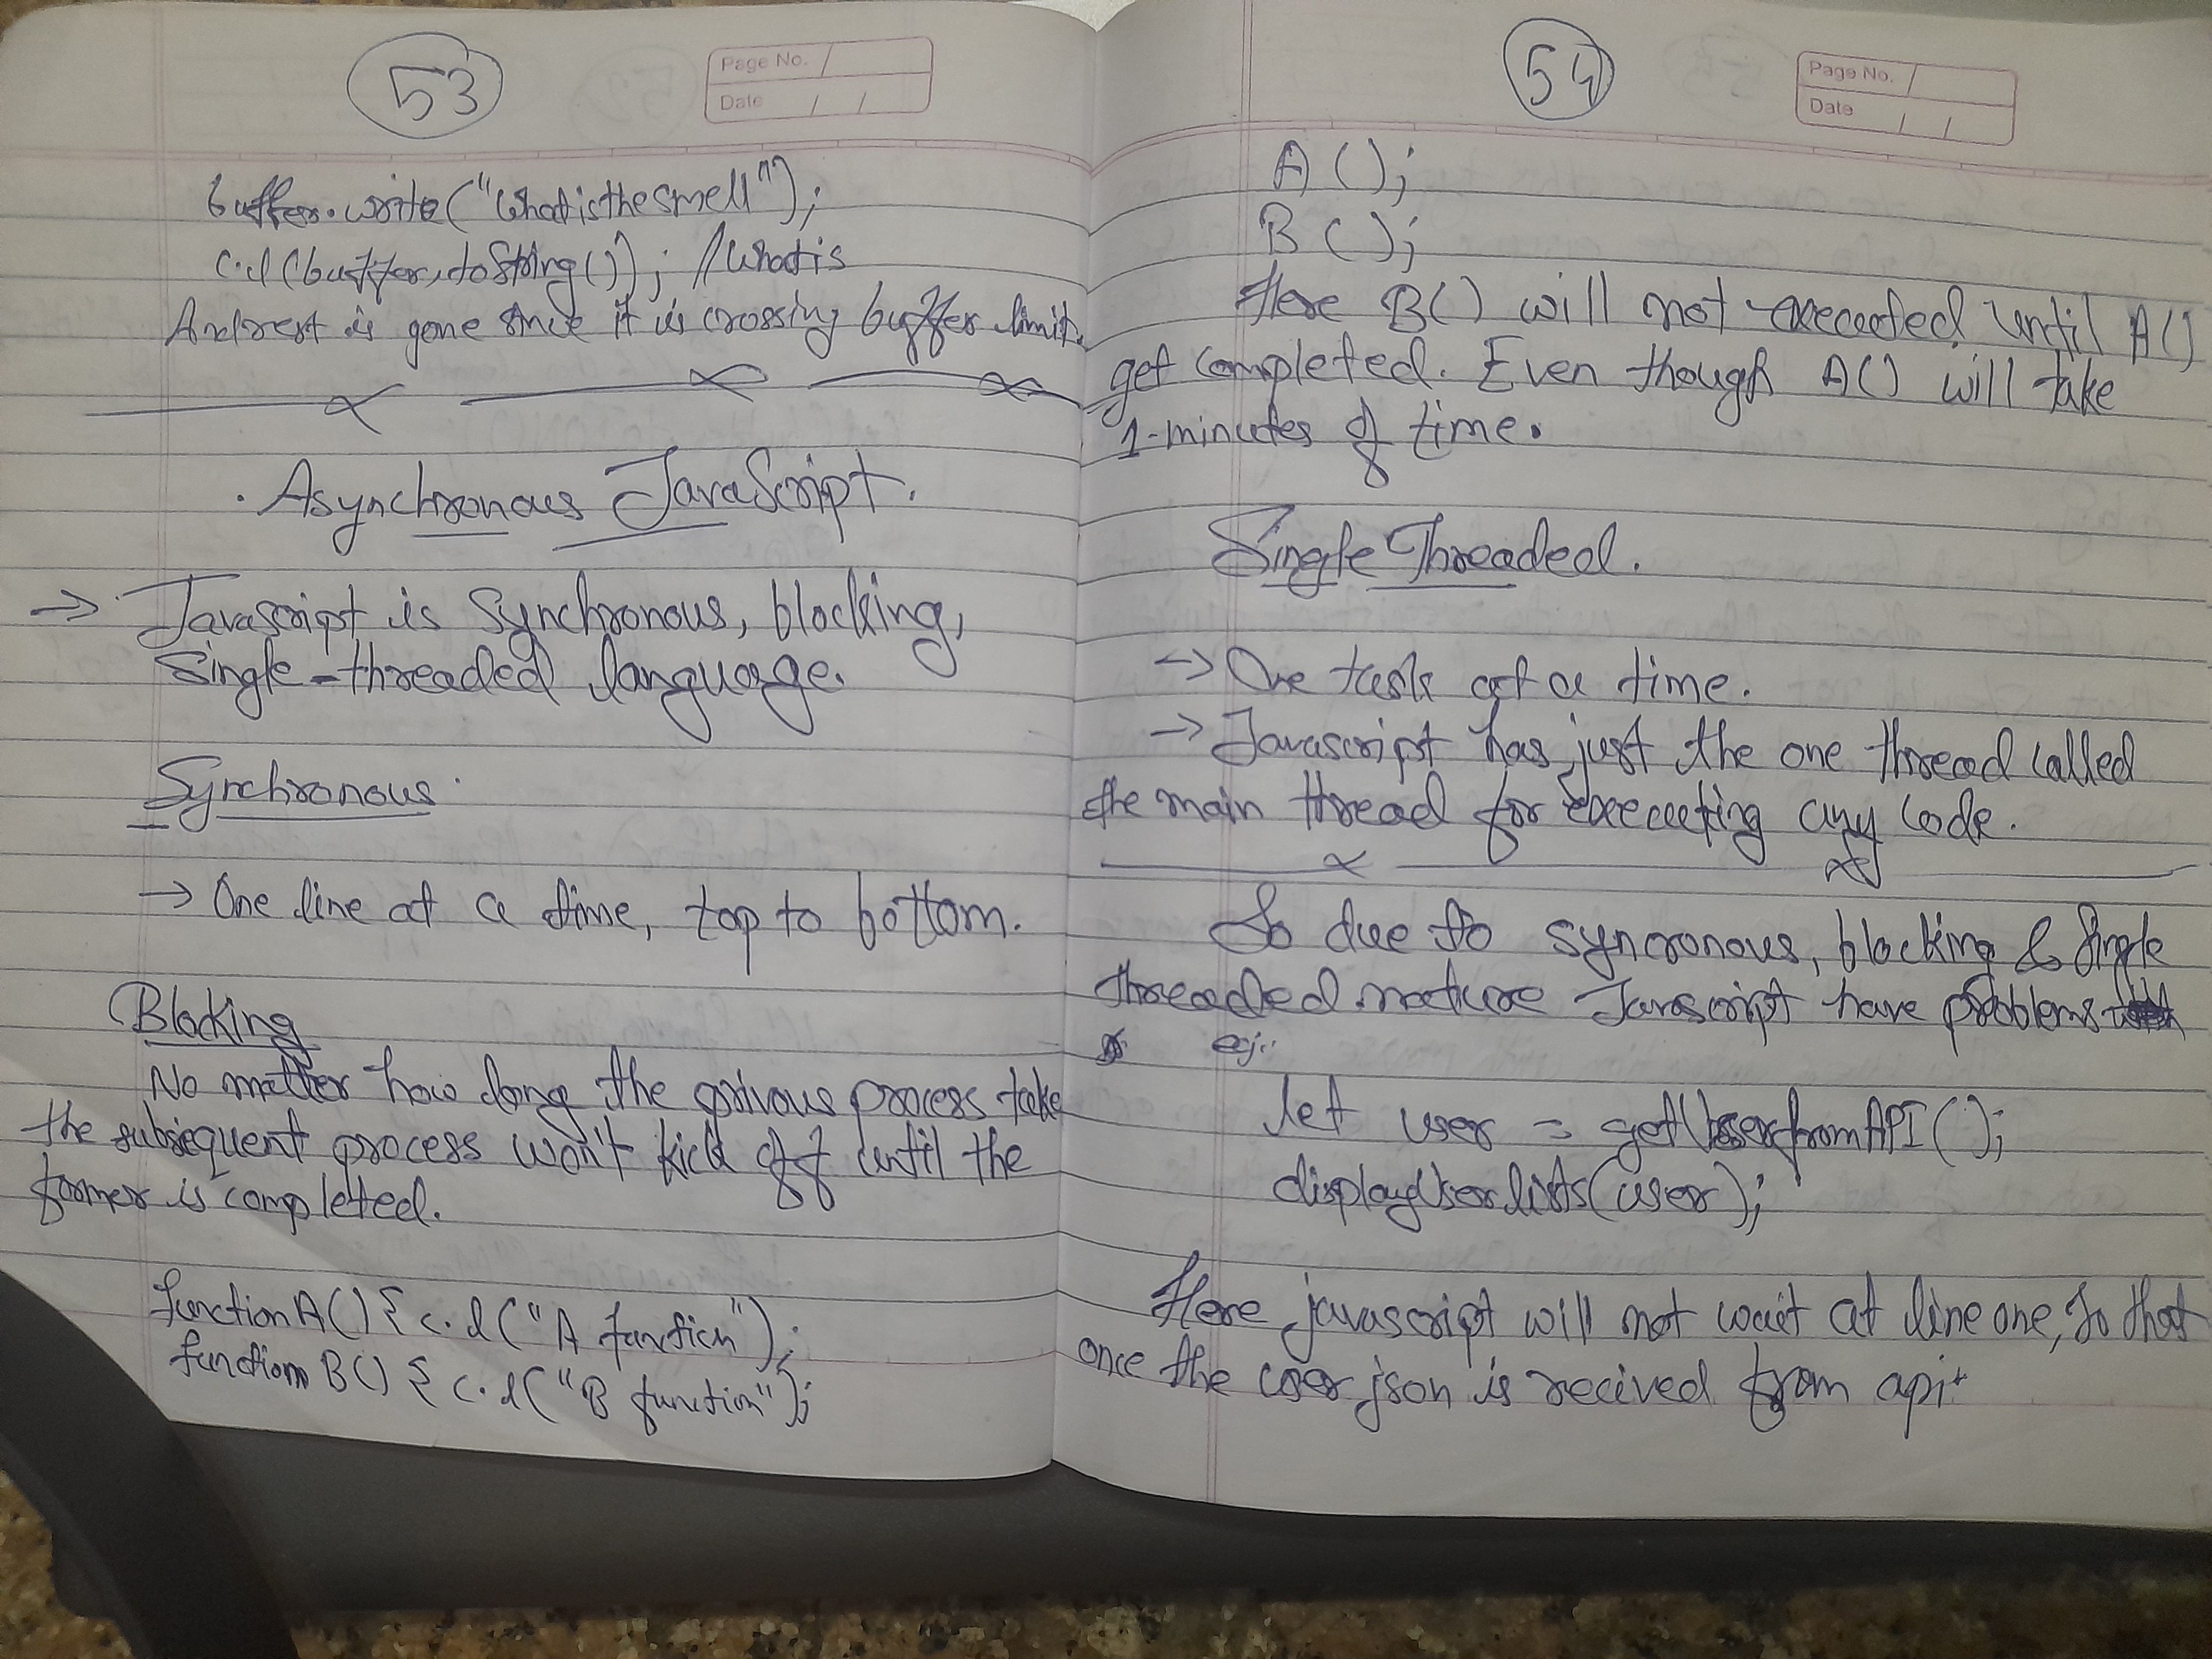 53
Page No.
Date
buffer.write("Whatisthesmell");
c.l(buffer.toString()); //Whatis
And rest is gone since it is crossing buffer limit.
Asynchronous JavaScript.
→ Javascript is synchronous, blocking,
single-threaded language.
Synchronous
→ One line at a time, top to bottom.
Blocking
No matter how long the privous process take
the subsequent process won't kick off until the
former is completed.
function A() { c.l("A function");
function B() { c.l("B function");
54
Page No.
Date
A();
B();
Here B() will not executed until A()
get completed. Even though A() will take
1-minutes of time.
Single Threaded.
→ One task at a time.
→ Javascript has just the one thread called
the main thread for executing any code.
So due to syncronous, blocking & single
threaded nature Javascript have problems
eg:
let user = getUserfromAPI();
displayUserlists(user);
Here javascript will not wait at line one, so that
once the user json is recived from api.